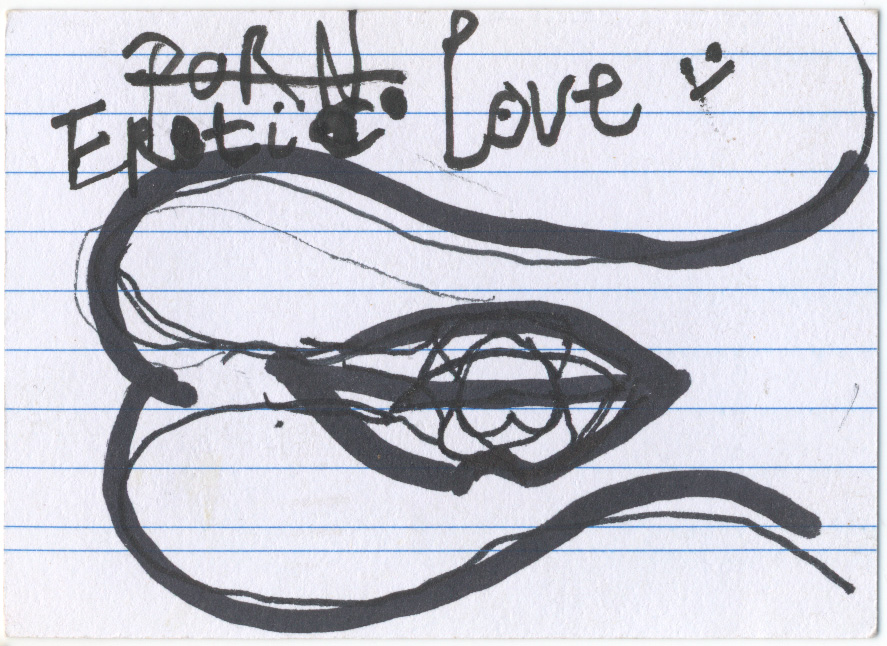 PORN
Erotic Love